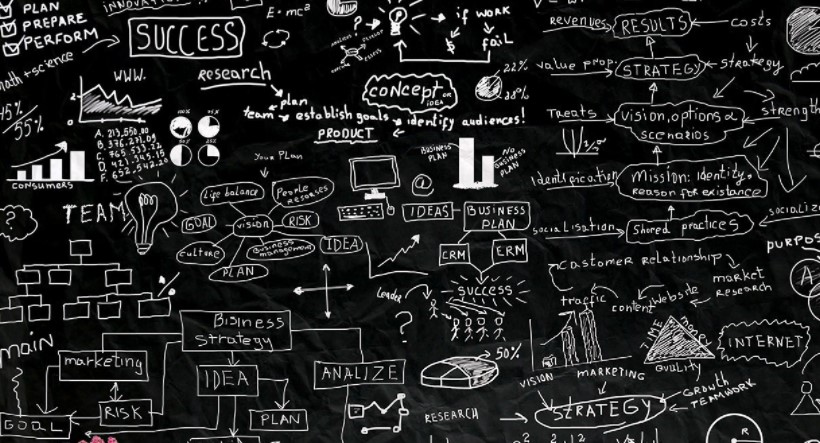 PLAN
PREPARE
PERFORM
E=mc²
SUCCESS
math + science
45%
55%
www.
A. 213,550.80
B. 376.271,09
C. 765.533.22
D. 421.545.15
F. 652.542.20
CONSUMERS
research
plan
team
establish goals
identify audiences!
PRODUCT
concept or
IDEA
?
if work
$
fail
22%
38%
revenues
RESULTS
costs
value prop.
STRATEGY
strategy
Treats
vision, options &
scenarios
strength
Identification
Mission: identity,
reason for existance
socialisation
shared practices
PURPOS
?
TEAM
Your Plan
Life balance
People
GOAL
vision
RISK
culture
Business
management
PLAN
IDEA
@
BUSINESS
PLAN
NO
BUSINESS
PLAN
IDEAS
BUSINESS
PLAN
CRM
ERM
SUCCESS
Leader
?
Castomer relationship
market
research
traffic
content
website
A
TIME
QUALITY
INTERNET
VISION
MARKETING
main
Bisiness
strategy
marketing
IDEA
ANALIZE
RISK
PLAN
GOAL
50%
RESEARCH
STRATEGY
GROWTH
TEAMWORK
R